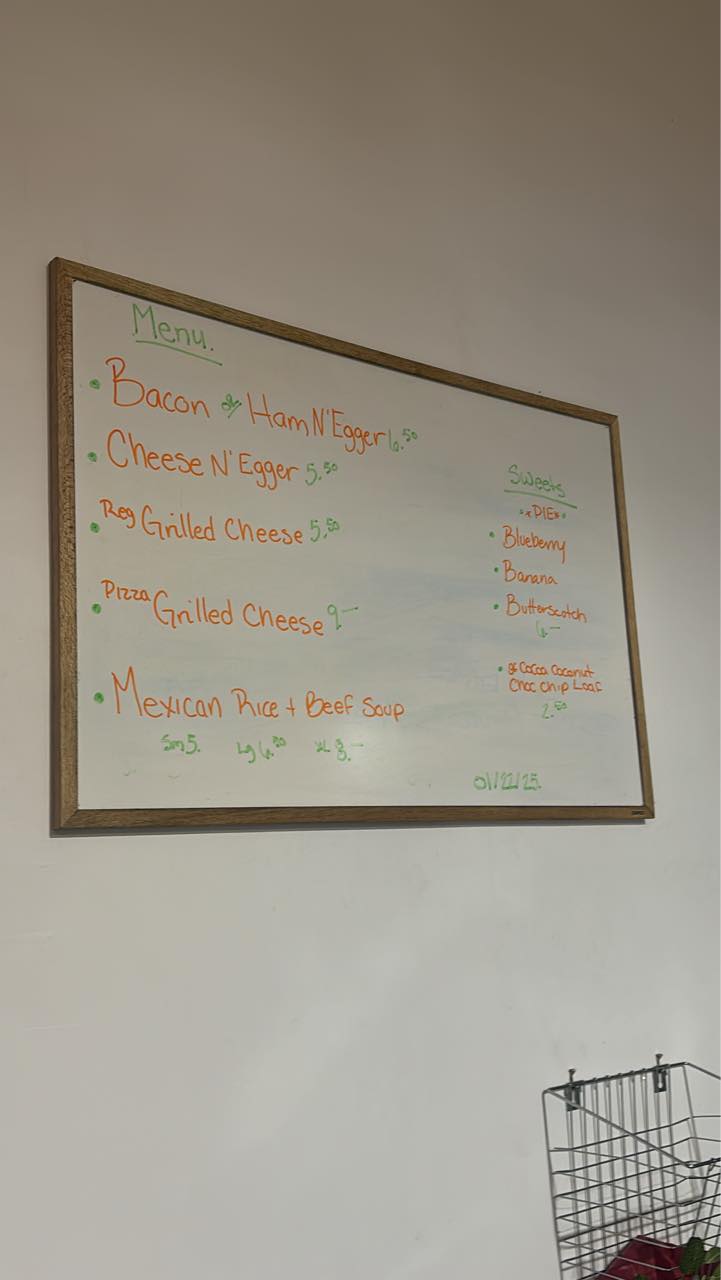 Menu.
• Bacon or Ham N' Egger 6.50
• Cheese N' Egger 5.50
• Reg Grilled Cheese 5.50
• Pizza Grilled Cheese 9—
• Mexican Rice + Beef Soup
Sm 5. Lg 6.50 XL 8.—
Sweets
**PIE**
• Blueberry
• Banana
• Butterscotch
6—
• gf Cocoa Coconut
Choc Chip Loaf
2.50
01/22/25